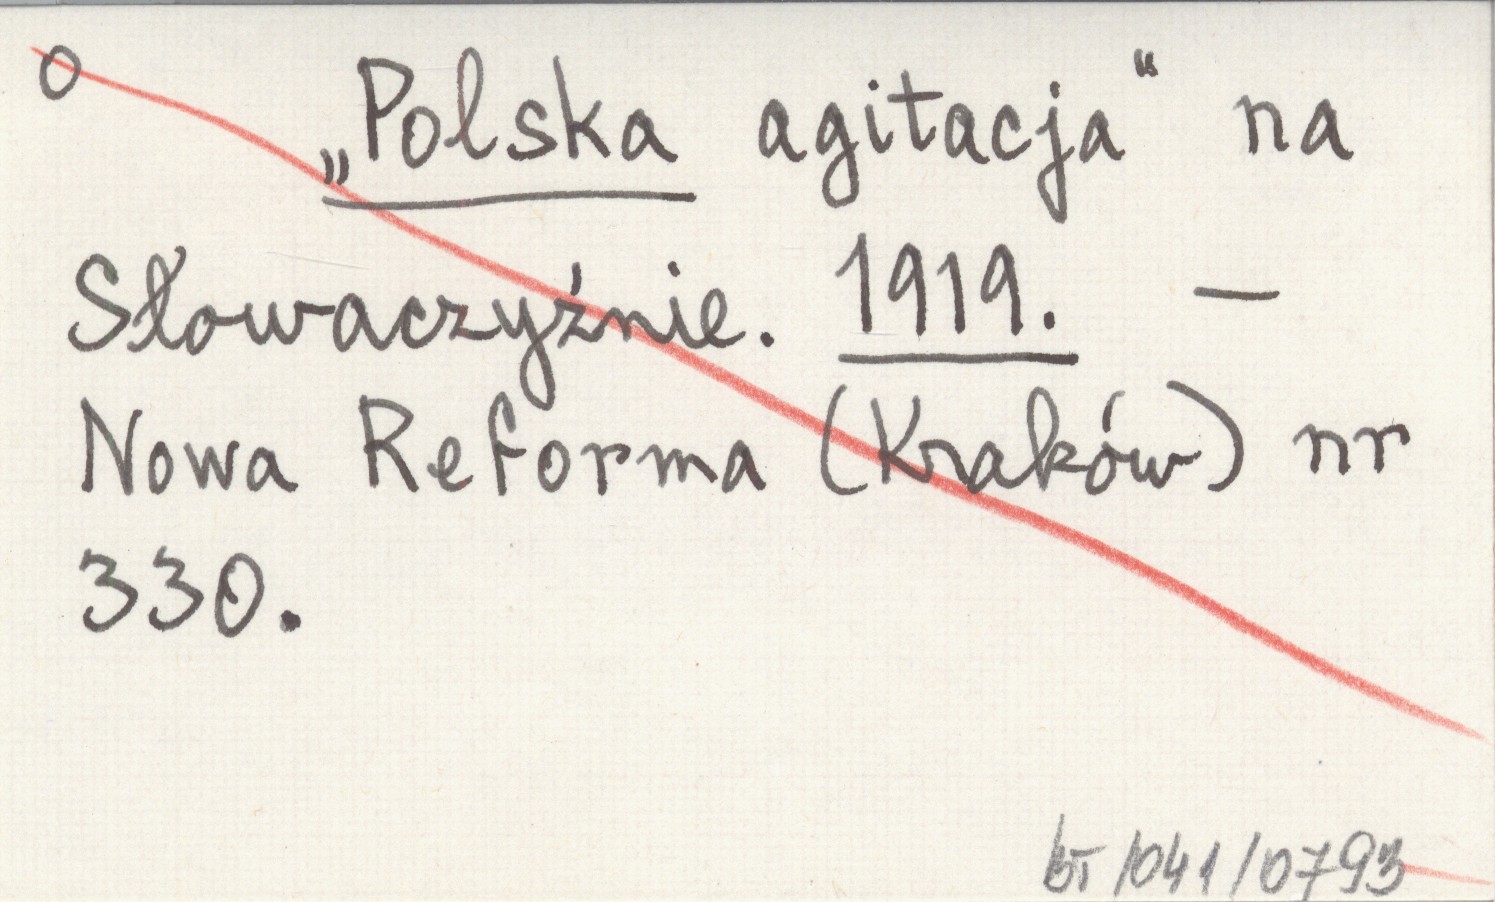 0
„Polska agitacja“ na
Słowaczyźnie. 1919. —
Nowa Reforma (Kraków) nr
330.
bt/041/0793